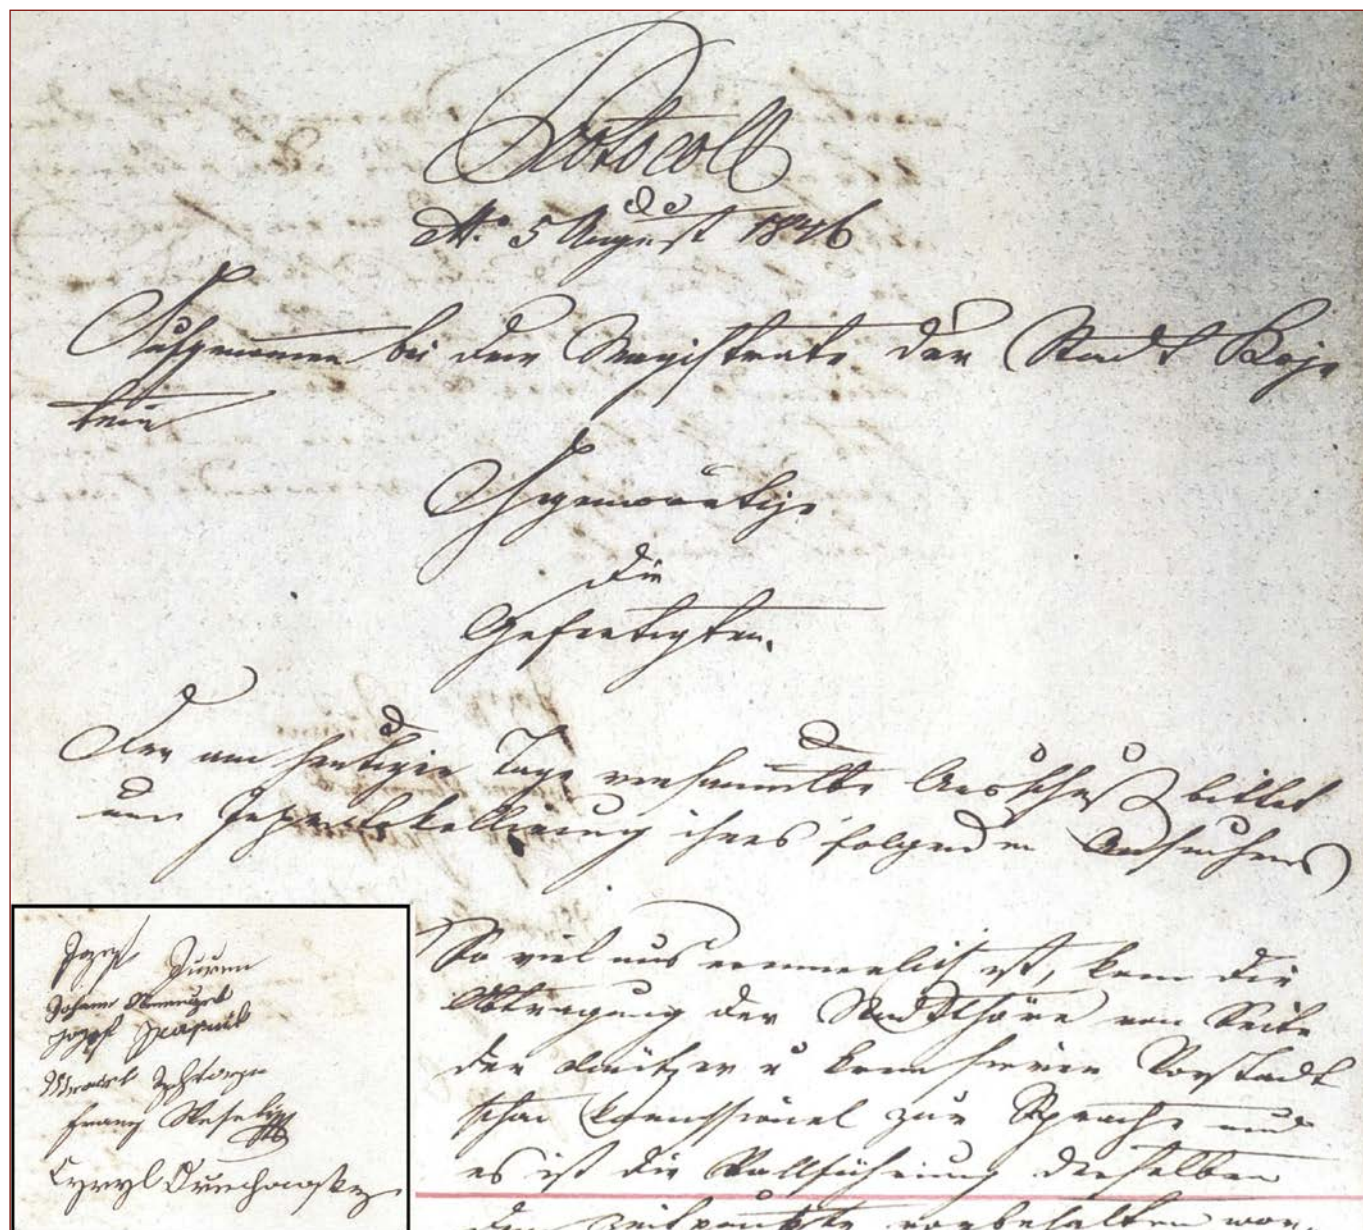 Protocoll
de
A° 5 August 1846
Aufgenommen bei dem Magistrate der Stadt Koje
tein
Gegenwärtige
Die
Gefertigten.
Der am heutigen Tage versammelte Ausschuß bittet
um Inprotokollirung ihres folgenden Ansuchens
So viel uns erinnerlich ist, kam die
Abtragung der Stadtthöre von Seite
der Olmützer u Kremsierer Vorstadt
schon commissionel zur Sprache und
es ist die Vollführung derselben
dem Zeitpunkte vorbehalten wor.
Jozef Juren
Johann
Jozef
Franz Wesely
Cyryl Orzechowsky